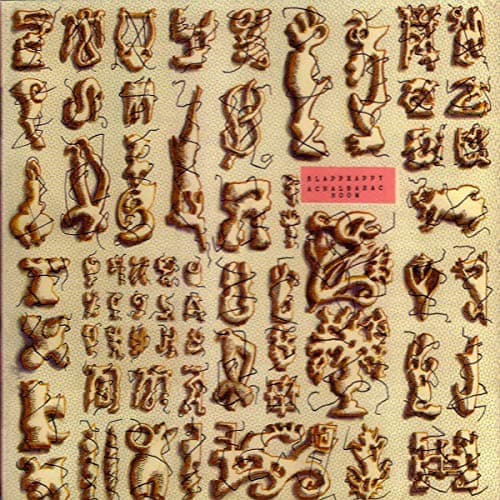 SLAPPHAPPY
ACNALBASAC
NOOM